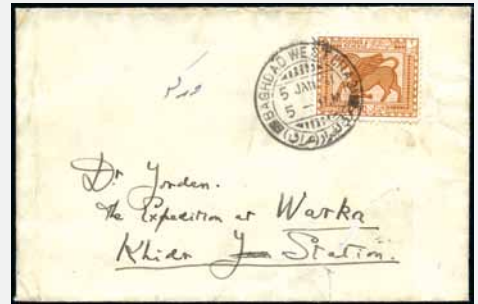 BAGHDAD WEST
5 JAN
5 -
وركه
Dr Jordan.
The Expedition at Warka
Khidr Station.